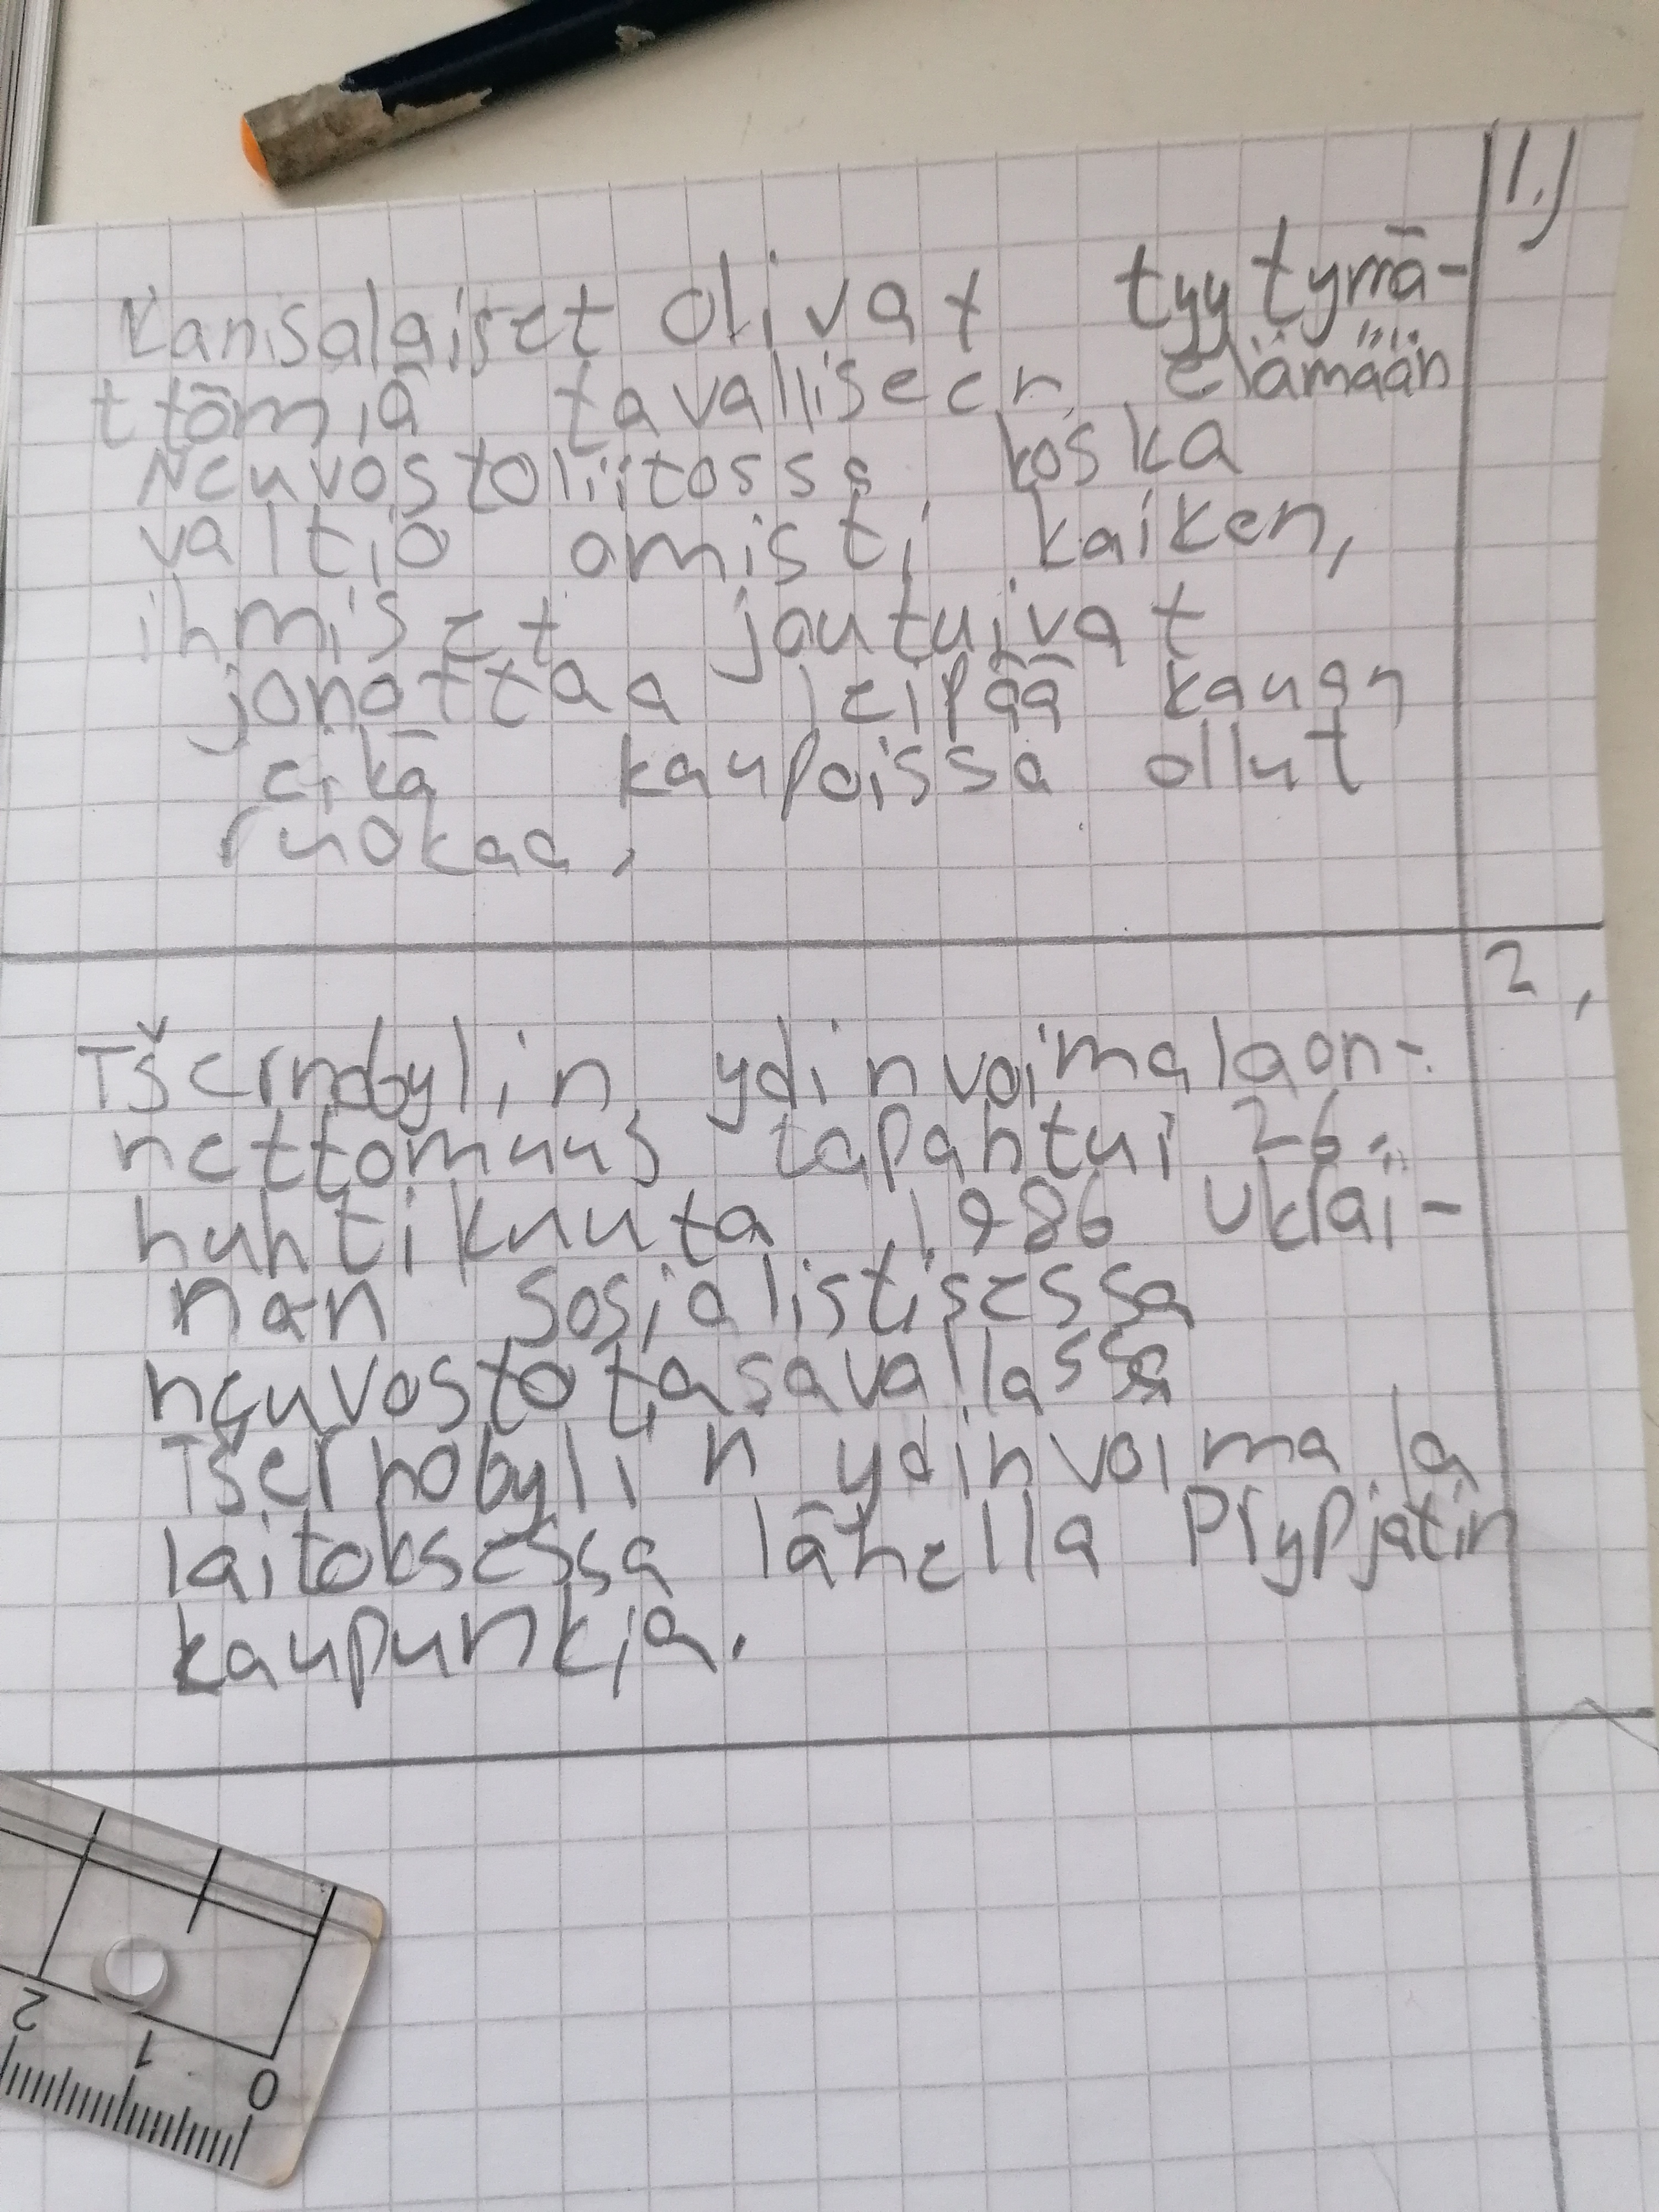 1.)
Kansalaiset olivat tyytymä-
ttömiä tavalliseen elämään
Neuvostoliitossa koska
valtio omisti kaiken,
ihmiset joutuivat
jonottaa leipää kauan
eikä kaupoissa ollut
ruokaa,
2,
Tšernobylin ydinvoimalaon-
nettomuus tapahtui 26.
huhtikuuta 1986 Ukrai-
nan sosialistisessa
neuvostotasavallassa
Tšernobylin ydinvoimala
laitoksessa lähellä Prypjatin
kaupunkia.
2 1 0